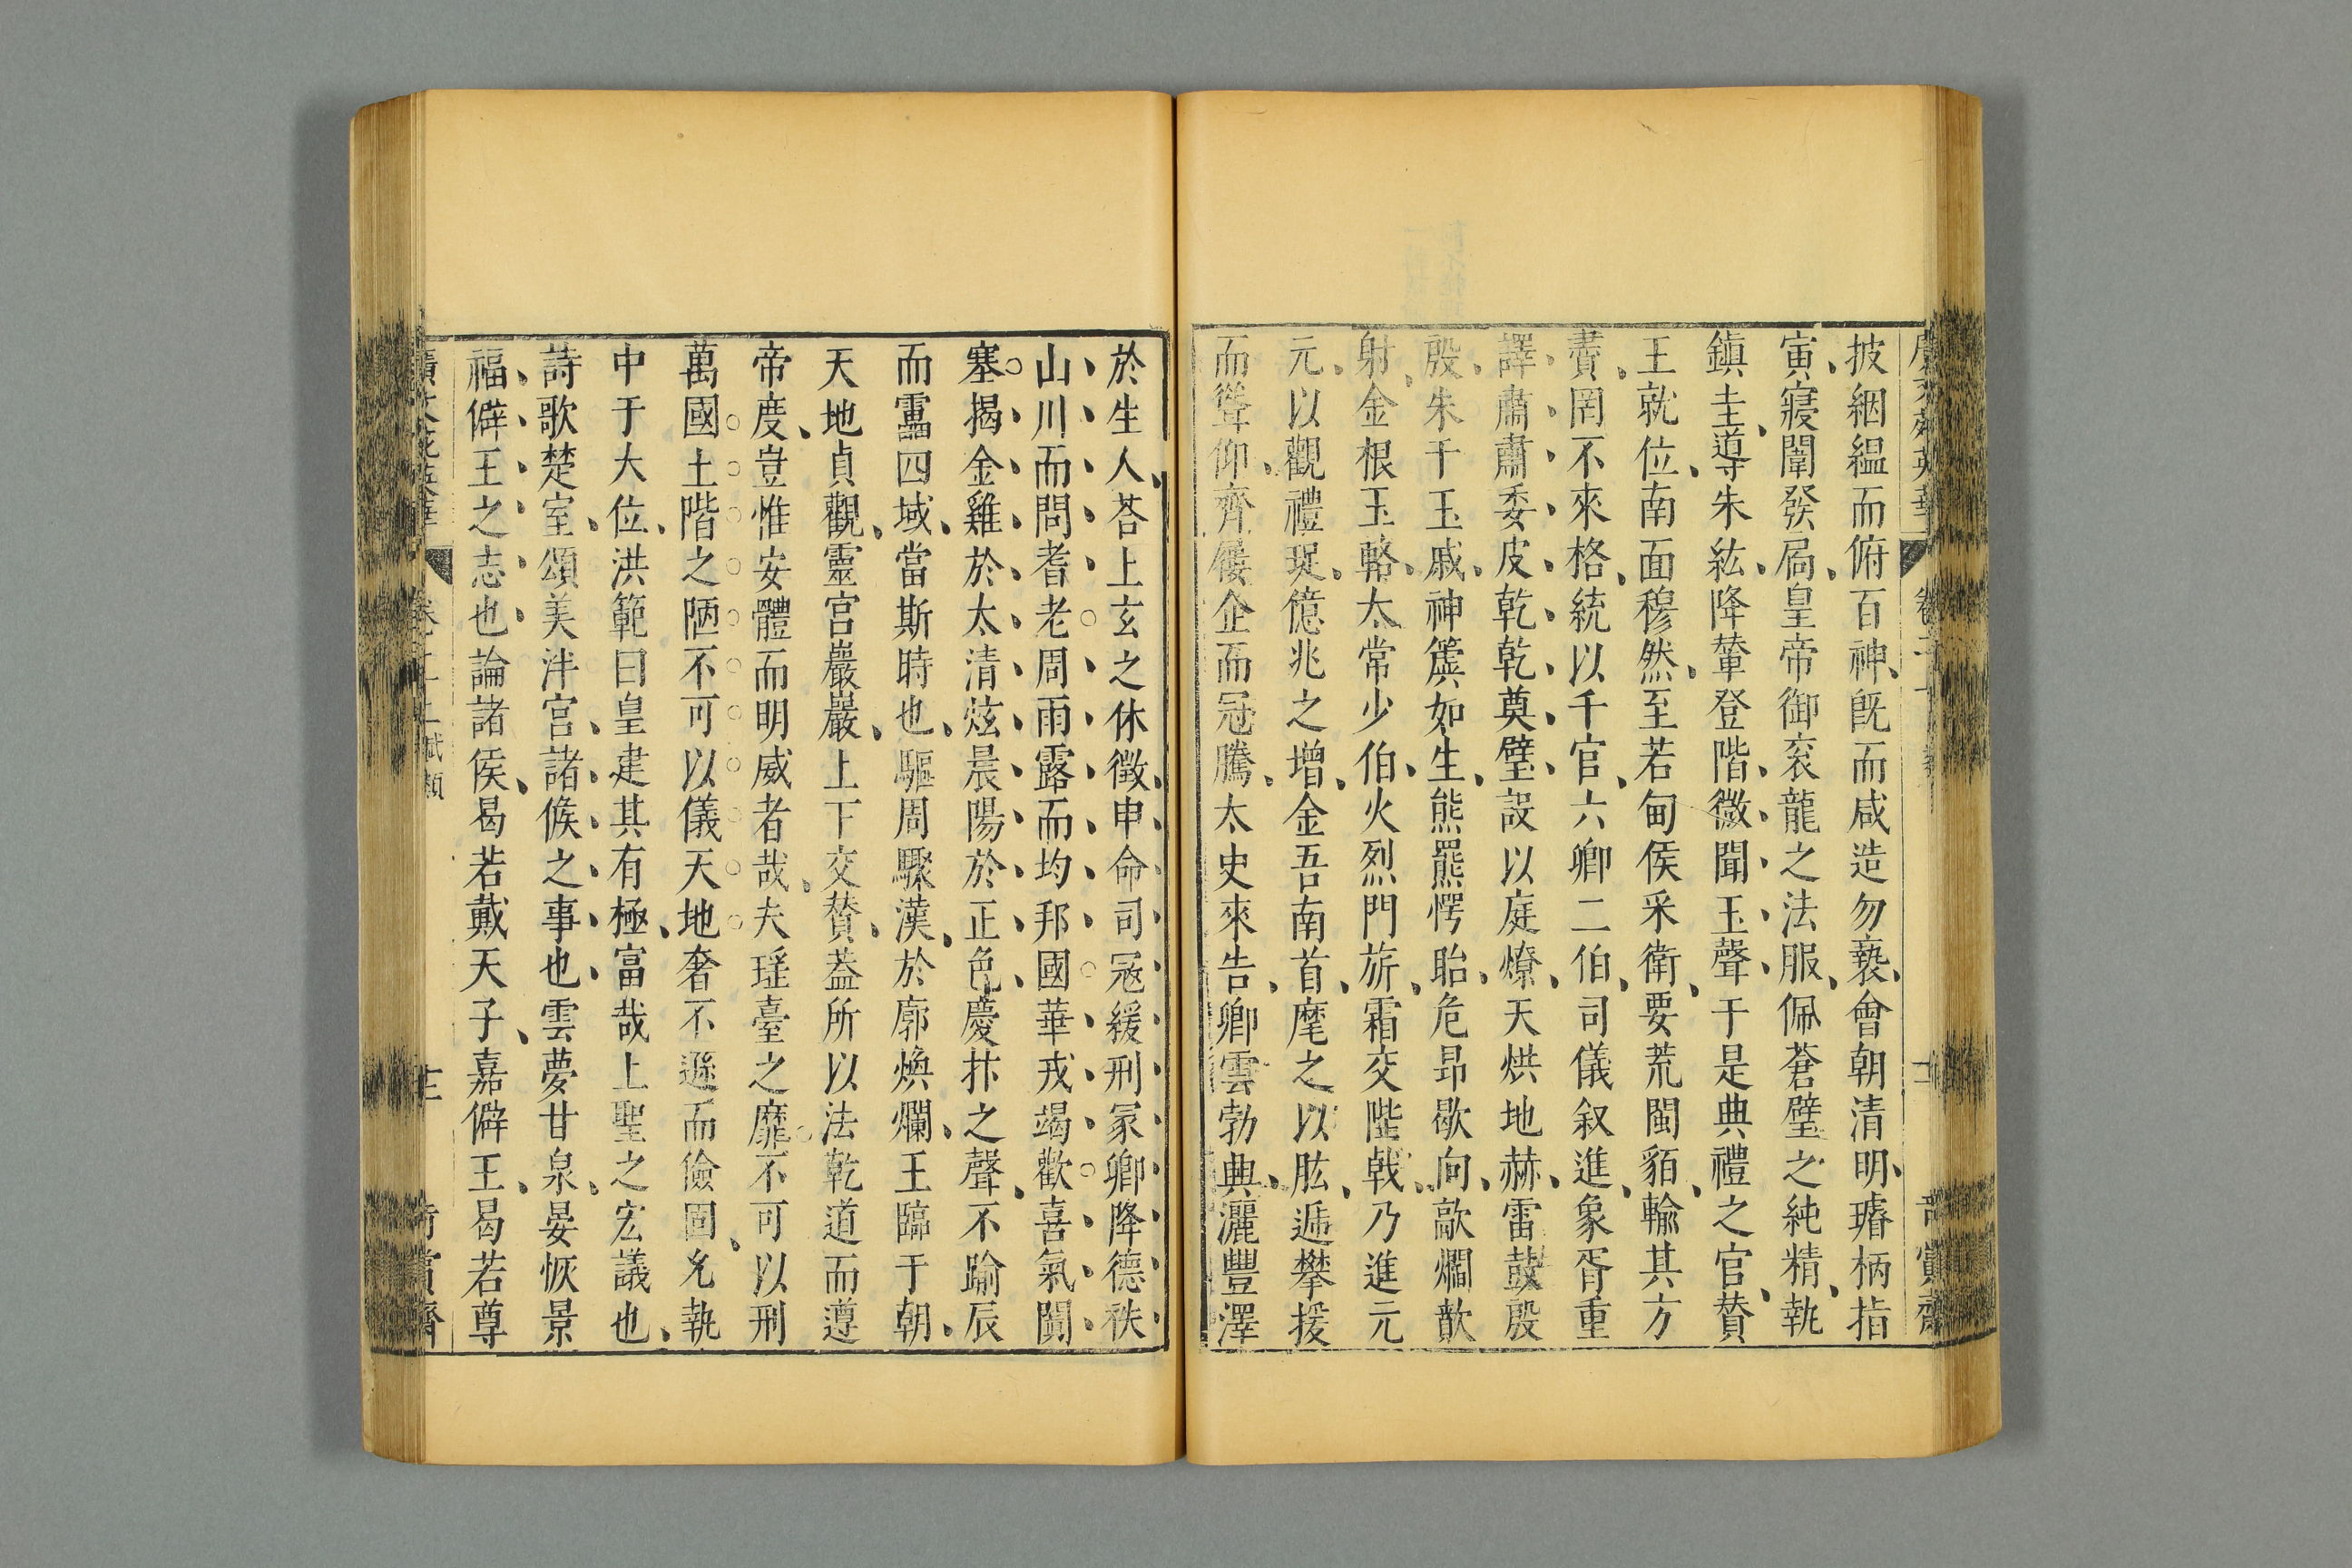 披絪緼而俯百神旣而咸造勿褻會朝清明璿柄指
寅寢闈發扃皇帝御衮龍之法服佩蒼璧之純精執
鎮圭導朱紘降輦登階微聞玉聲于是典禮之官賛
王就位南面穆然至若甸侯采衛要荒閩貊輸其方
賮罔不來格統以千官六卿二伯司儀叙進象胥重
譯肅肅委皮乾乾奠璧設以庭燎天烘地赫雷鼓殷
殷朱干玉戚神簴如生熊羆愕眙危昂歇向歊爓歆
射金根玉輅太常少伯火烈門旂霜交陛戟乃進元
元以觀禮珽億兆之增金吾南首麾之以肱遞攀援
而聳仰齊屨企而冠騰太史來告卿雲勃典灑豐澤
於生人荅上玄之休徵申命司冦緩刑冢卿降德秩
山川而問耆老周雨露而均邦國華戎竭歡喜氣闐
塞揭金雞於太清炫晨陽於正色慶抃之聲不踰辰
而靁四域當斯時也驅周驟漢於廓煥爛王臨于朝
天地貞觀靈宫巖巖上下交賛葢所以法乾道而遵
帝度豈惟安體而明威者哉夫瑶臺之靡不可以刑
萬國土階之陋不可以儀天地奢不遜而儉固允執
中于大位洪範曰皇建其有極富哉上聖之宏議也
詩歌楚室頌美泮宫諸侯之事也雲夢甘泉宴恢景
福僻王之志也論諸侯曷若戴天子嘉僻王曷若尊